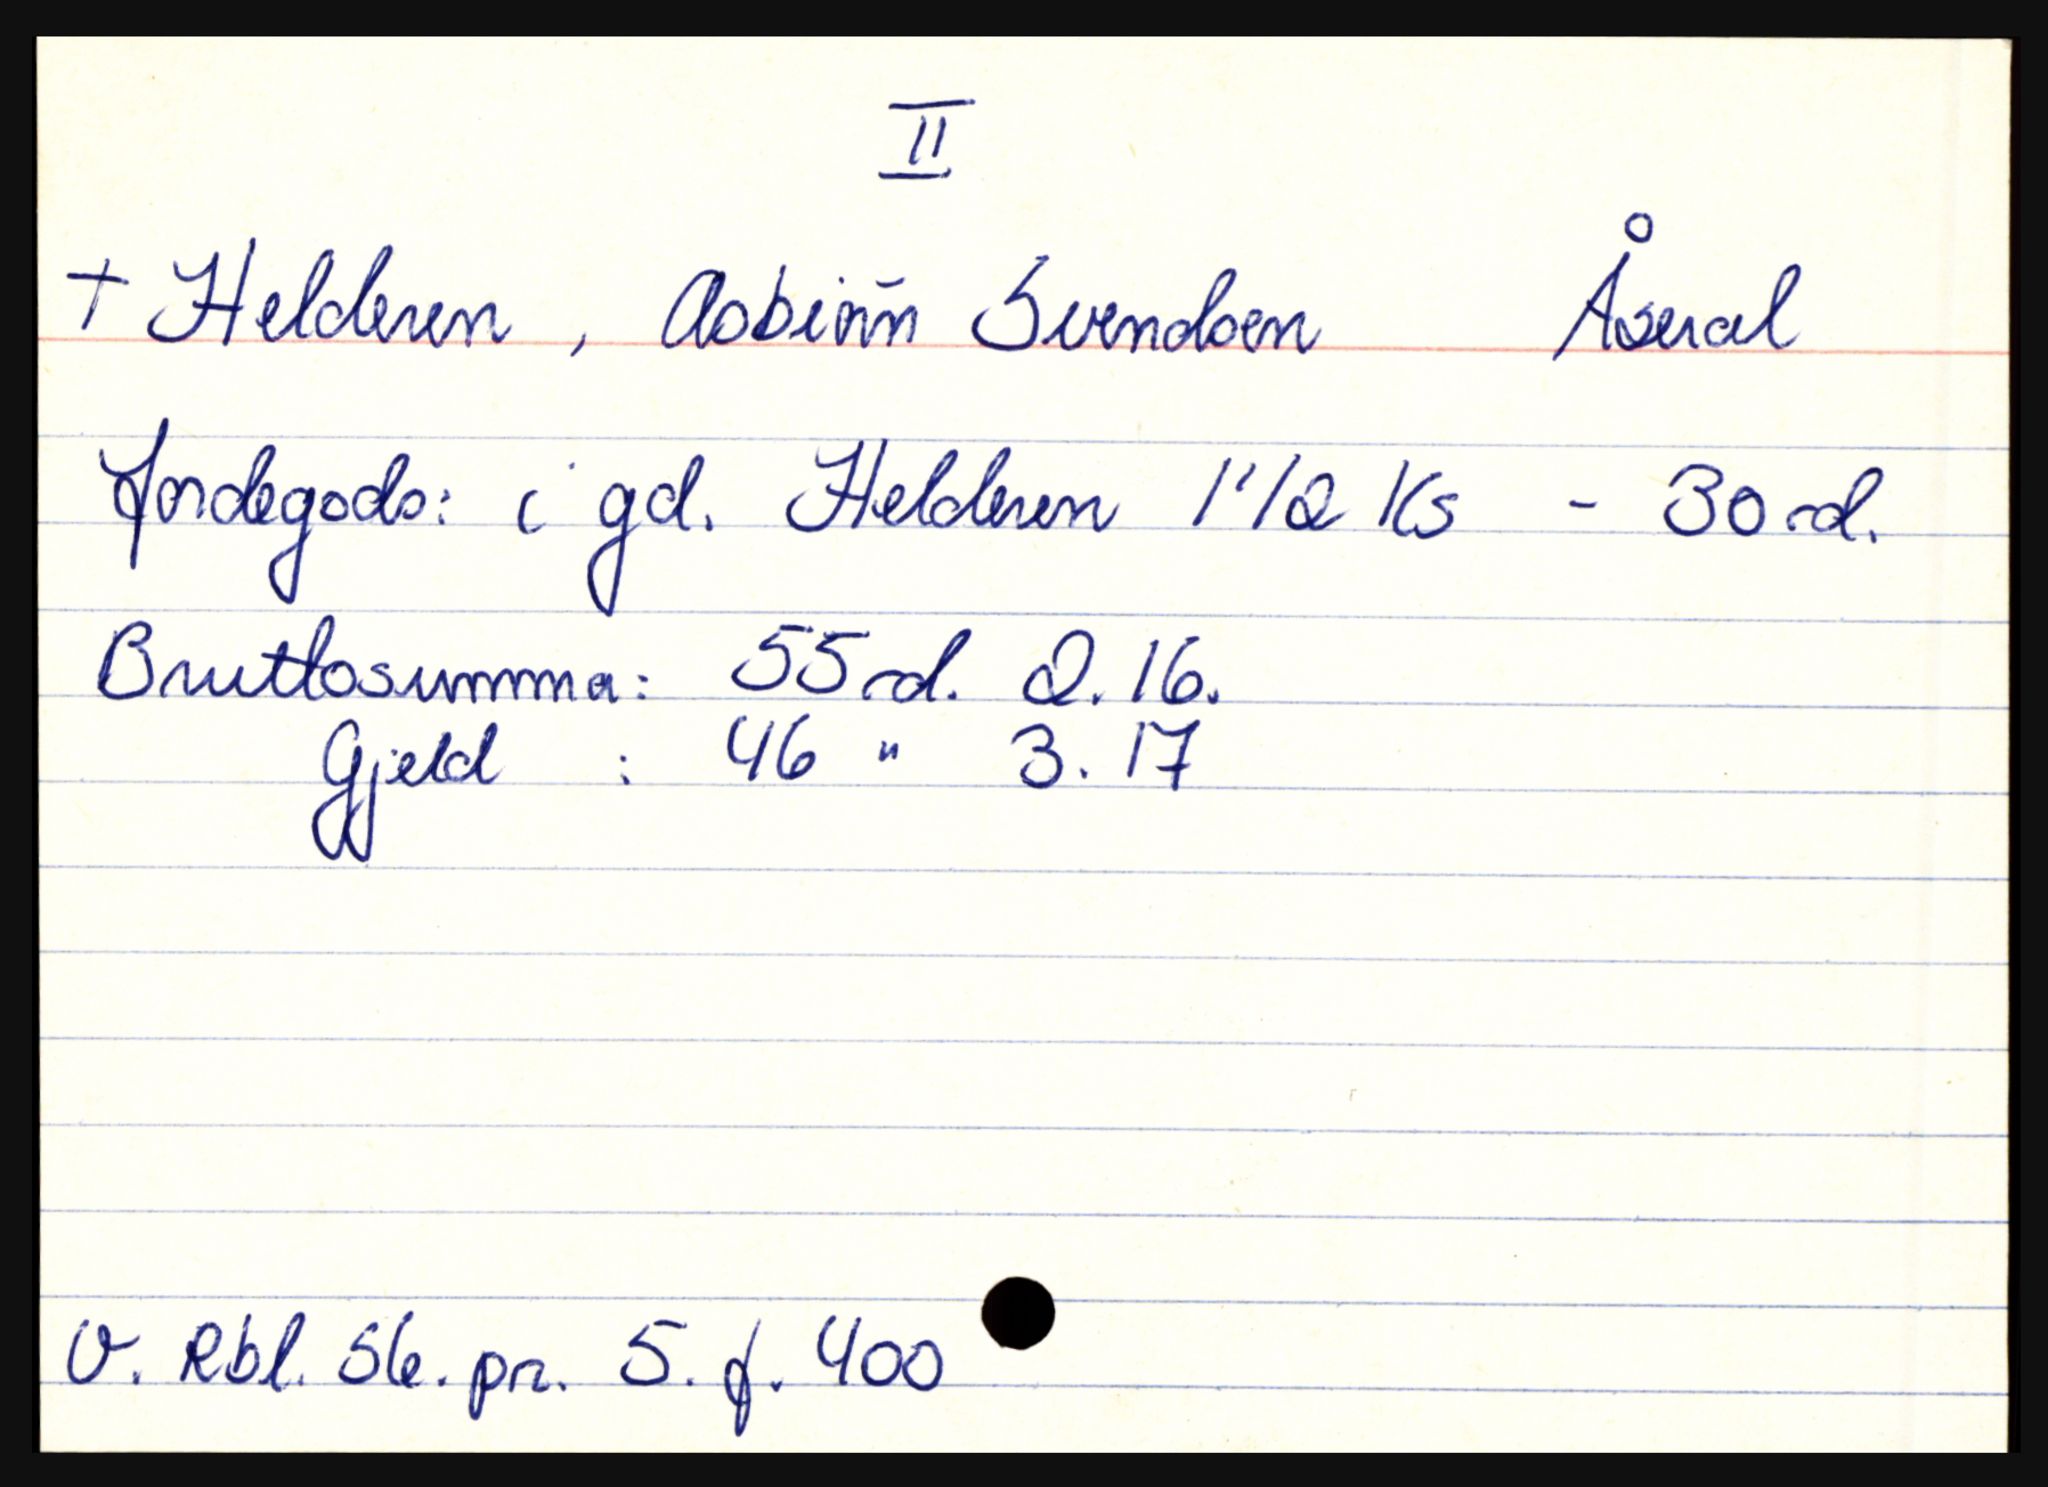 II
+ Helderen, Asbiørn Svendsen Åseral
Jordegods: i gd. Helderen 1 1/2 Ks - 30 rd.
Bruttosumma: 55 rd. 2. 16.
Gjeld : 46 " 3. 17
V. Rbl. Sk. pr. 5. f. 400